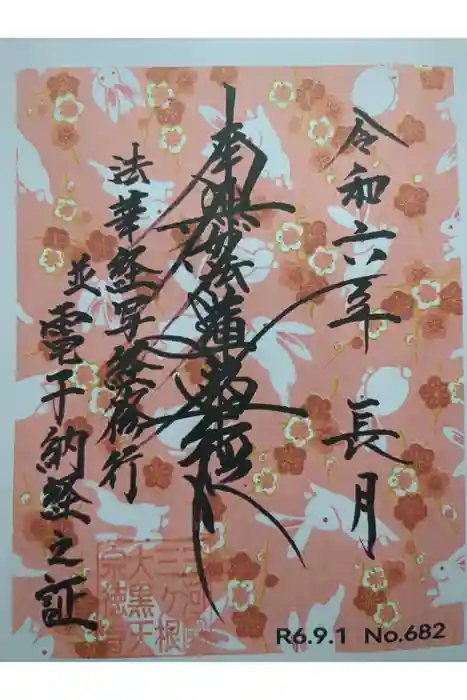 令和六年 長月
南無妙法蓮華経
法華経写経修行
並電子納経之証
三河國
三ヶ根
大黒天
宗徳寺
R6.9.1 No.682